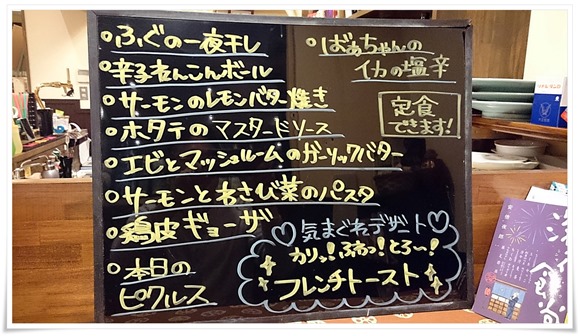 ふぐの一夜干し
辛子れんこんボール
サーモンのレモンバター焼き
ホタテのマスタードソース
エビとマッシュルームのガーリックバター
サーモンとわさび菜のパスタ
鶏皮ギョーザ
本日の
ピクルス
ばあちゃんの
イカの塩辛
定食
できます!
♡気まぐれデザート♡
カリっ!ふわっ!とろ〜!
フレンチトースト